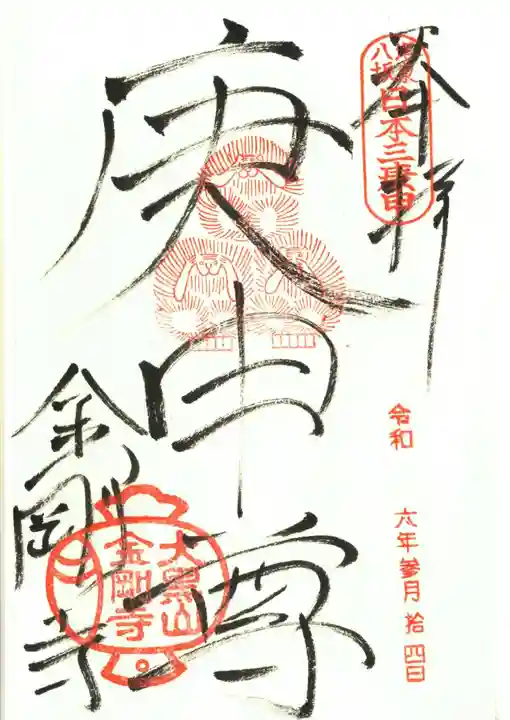 奉拝
八坂
日本三庚申
令和 六年参月拾四日
庚申尊
金剛寺
大黒山
金剛寺